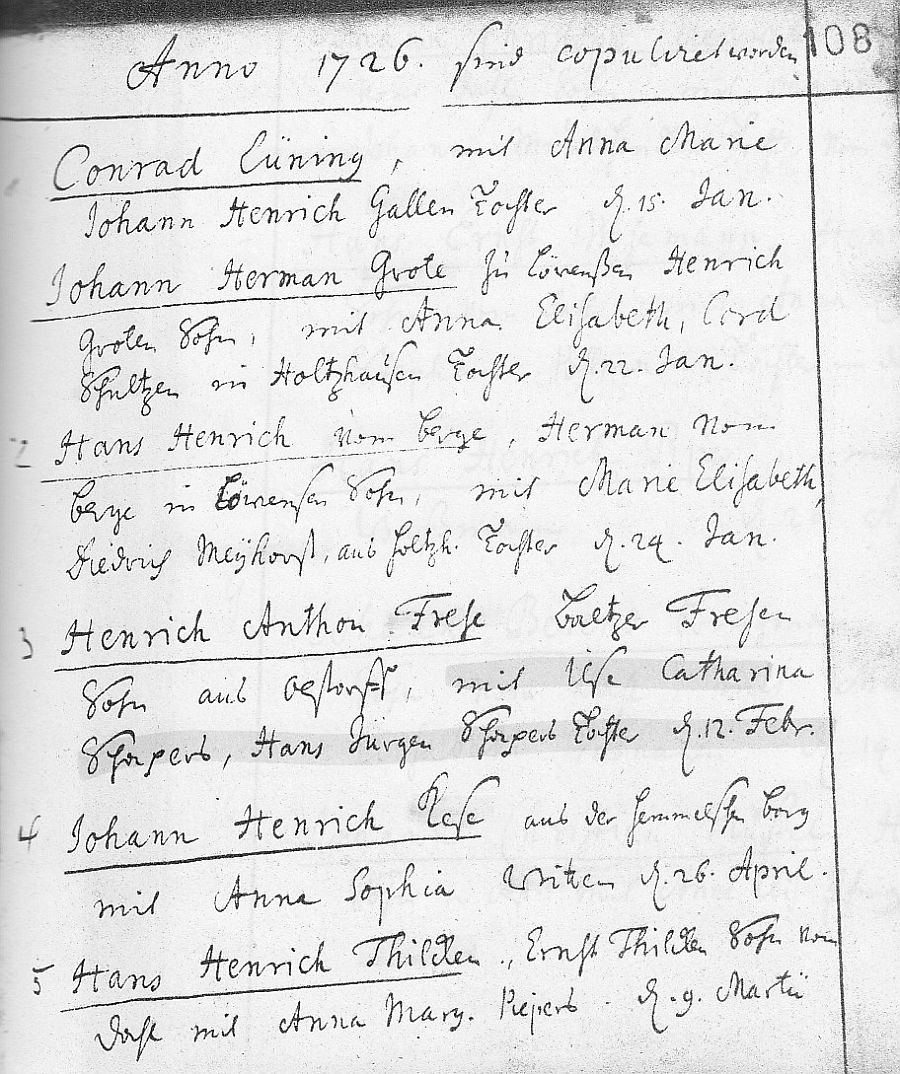 108
Anno 1726. sind copuliret worden
Conrad Lüning, mit Anna Marie
Johann Henrich Gallen Tochter d. 15. Jan.
Johann Herman Grote zu Löwensen Henrich
Groten Sohn, mit Anna Elisabeth, Cord
Schultzen in Holtzhausen Tochter d. 22. Jan.
2 Hans Henrich vom berge, Herman vom
berge in Löwensen Sohn, mit Marie Elisabeth,
Diedrich Meÿhorst, aus holtzh. Tochter d. 24. Jan.
3 Henrich Anthon Frese Baltzer Fresen
Sohn aus mit Ilse Catharina
Schapers, Hans Jürgen Schapers Tochter d. 12. Febr.
4 Johann Henrich Rese aus der berg
mit Anna Sophia Witten d. 26. April.
5 Hans Henrich Thilken, Ernst Thilken Sohn vom
mit Anna Marg. Piepers. d. 9. Martii